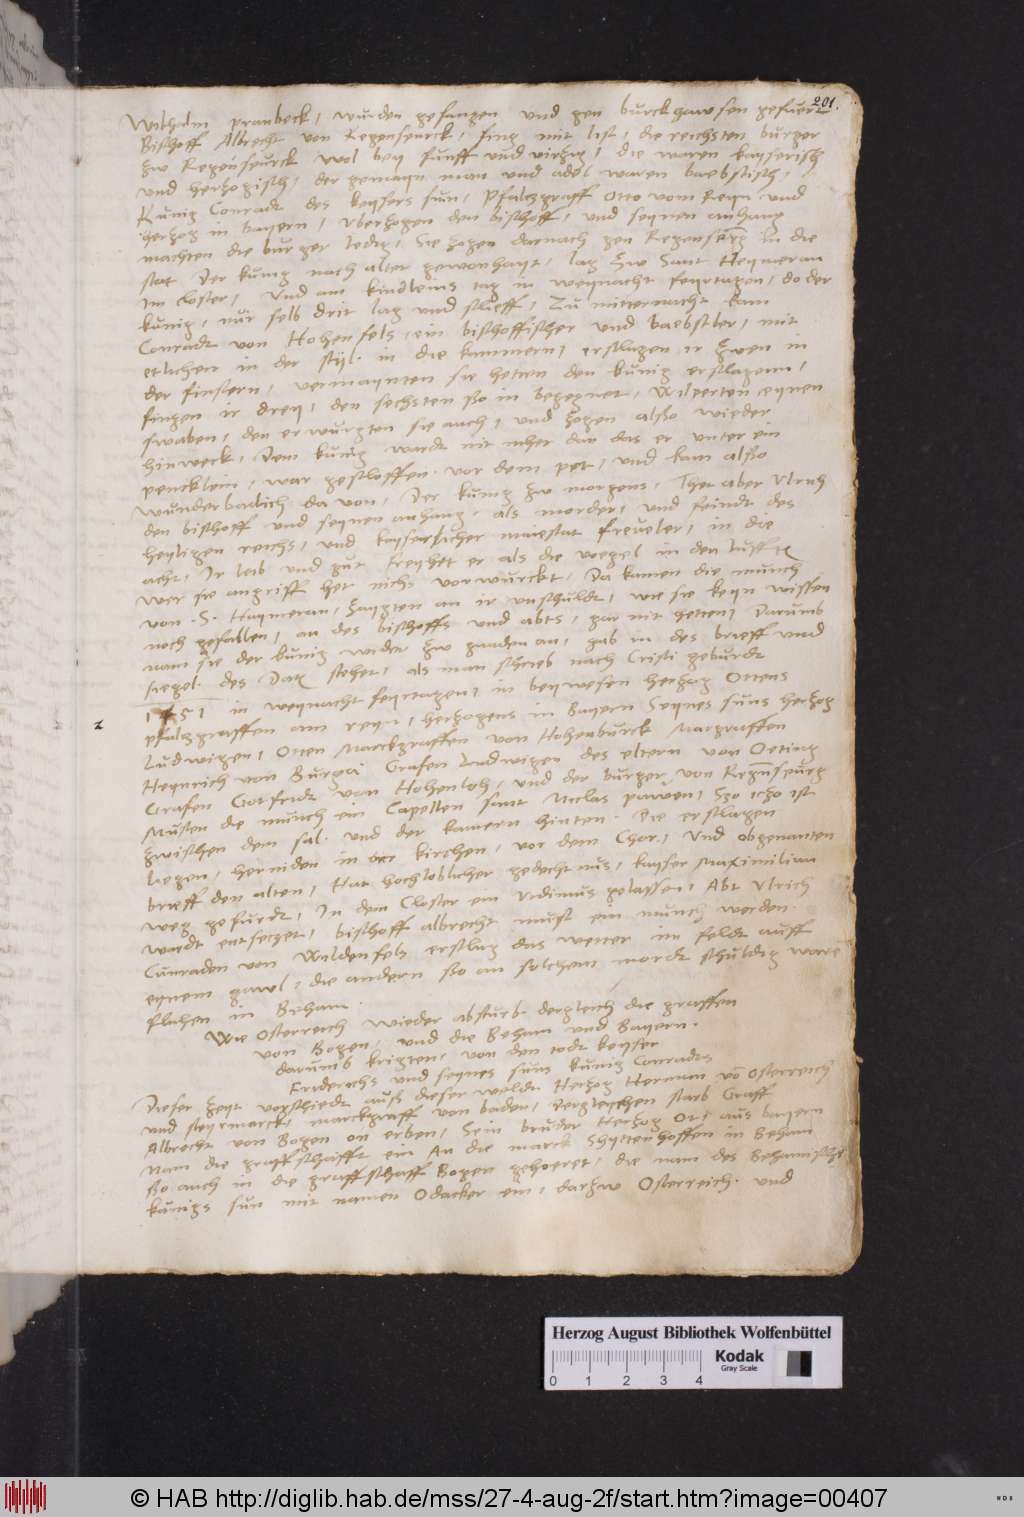 201.
Wilhelm pranbeck, wurden gefangen und gen burckhawsen gefuert
Bischoff Albrecht von Regenspurck, fing mit list, die reichsten burger
zw Regenspurck wol bey funff und virzig, die waren kayserisch
und herzogisch, der gemayn man und adel waren baebstisch,
Kunig Conradt des keysers sun, Pfalczgraff Otto vom Reyn und
herzog in Bayern, uberzogen den bischoff, und seynen anhang
machten die burger ledig, Sie zogen darnach gen Regenspurg in die
stat Der kunig nach alter gewonhayt, lag zw Sant Heymeran
im closter, Und am kindleins tag in weynacht feyrtagen, do der
kunig, nur selb drit lag und schlieff, Zu mitternacht kam
Conradt von Hohenfels, ein bischoffischer und baebstler, mit
etlichen in der styl. in die kammern, erschlagen ir zwen in
der finstern, vermaynten sie hetten den kunig erschlagenn,
fingen ir drey, den sechsten so in begegnet, eynen
swaben, den erwurgten sie auch, und zogen also wieder
hinweck, Dem kunig wardt nit mher dan das er unter ein
pencklein, war geschloffen. vor dem pet, und kam also
wunderbarlich da von, Der kunig zw morgens, Thet aber Ulrich
den bischoff und seynen anhang, als morder, und feindt des
heyligen reichs, und kayserlicher maiestat freveler, in die
acht, Ir leib und gut freyhet er als die vogel in den lufften
wer sie angriff het nichs vorwurckt, Da kamen die munch
von .S. Haymeran, zaygten an ir unschuldt, wie sie keyn wissen
noch gefallen, an des bischoffs und abts, gar nit hetten, Darumb
nam sie der kunig wider zw gnaden an, gab in des brieff und
siegel. des Datz stehet, als man schrieb nach Cristi geburdt
1251 in weynacht feyrtagen, in beywesen herzog Ottens
2
pfalczgraffen am reyn, herzogens in Bayern Seynes suns herzog
Ludwigen, Otten Marckgraffen von Hohenburck Margraffen
Heynrich von Burgaw Grafen Ludwigen des eltern von Oeting
Grafen Gotfridt von Hohenloh, und der burger von Regenspurg
Musten die munch ein Capellen sant Niclas pawen, Szo iczo ist
zwischen dem sal. und der kamern hinten. Die erschlagen
liegen, herniden in der kirchen, vor dem Chor, Und obgenanten
brieff den alten, Hat hochloblicher gedechtnus, kayser Maximilian
weg gefurdt, In dem Closter ein vidimus gelassen, Abt Ulrich
wardt entseczet, bischoff albrecht must ein munch werden.
Cunraden von Wildenfels erschlug das wetter im feldt auff
eynem gawl, die andern so an solchem mordt schuldig ware
fluhen in Beham.
Wie Osterreich wieder abstarb dergleich die graffen
von Bogen, und die Beham und Bayern.
darumb krigten, von den todt keyser
Friderichs und seynes suns kunig Conradts
Dieser zeyt verschiedt auß dieser weldt Herzog Herman vo Osterreich
und steyrmarck, marckgraff von baden, Dergleychen starb Graff
Albrecht von Bogen on erben, Sein bruder Herzog Ot, aus bayern
Nam die graffschafft ein An die marck Schyttenhoffen in Beham
so auch in die graffschaff Bogen gehoeret, die nam des Behamische
kunigs sun mit namen Odacker ein, darzw Osterreich. und
Herzog August Bibliothek Wolfenbüttel
Kodak
Gray Scale
0 1 2 3 4
© HAB http://diglib.hab.de/mss/27-4-aug-2f/start.htm?image=00407